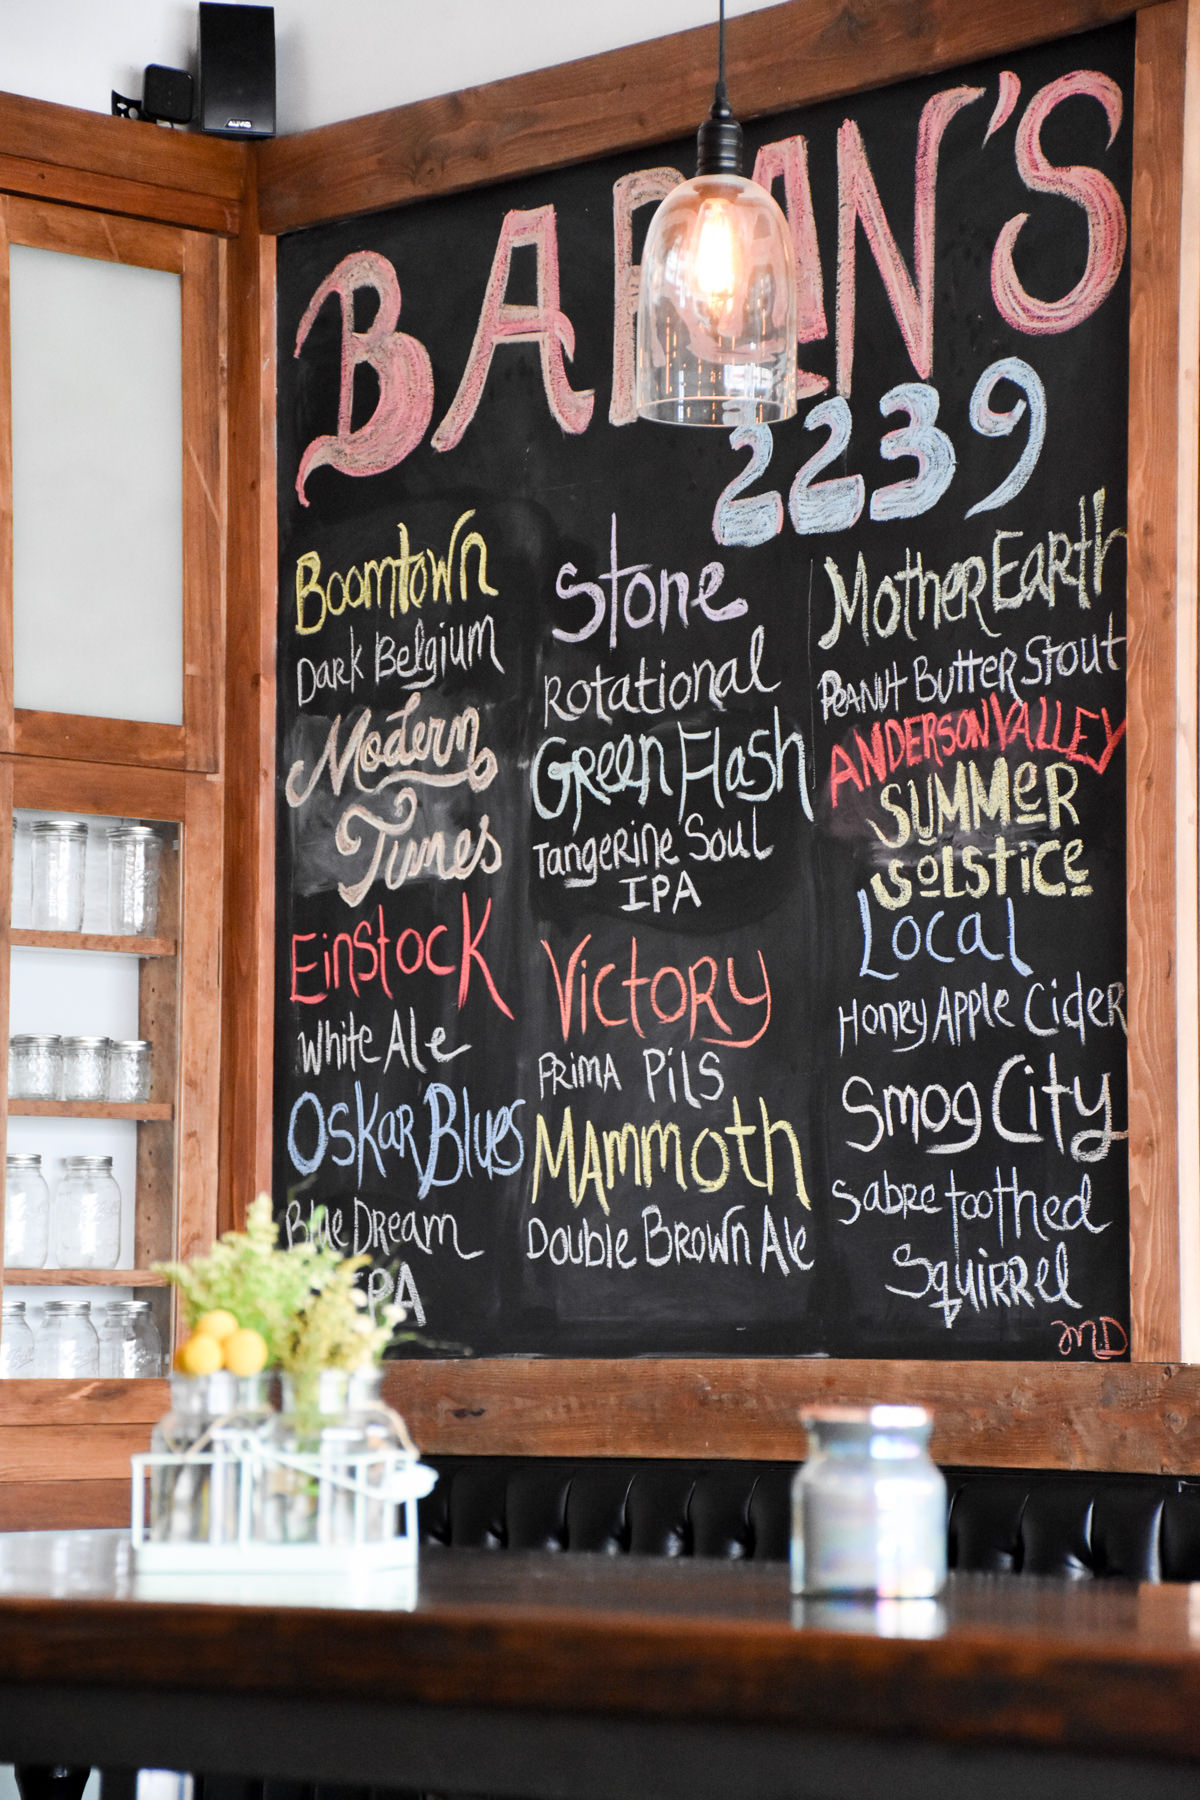 BARAN'S
2239
Boomtown
Dark Belgium
Modern
Times
Einstock
White Ale
Oskar Blues
Blue Dream
IPA
Stone
Rotational
Green Flash
Tangerine Soul
IPA
Victory
Prima Pils
Mammoth
Double Brown Ale
Mother Earth
Peanut Butter Stout
ANDERSON VALLEY
SUMMER
SOLSTICE
Local
Honey Apple Cider
Smog City
Sabre toothed
Squirrel
M.D